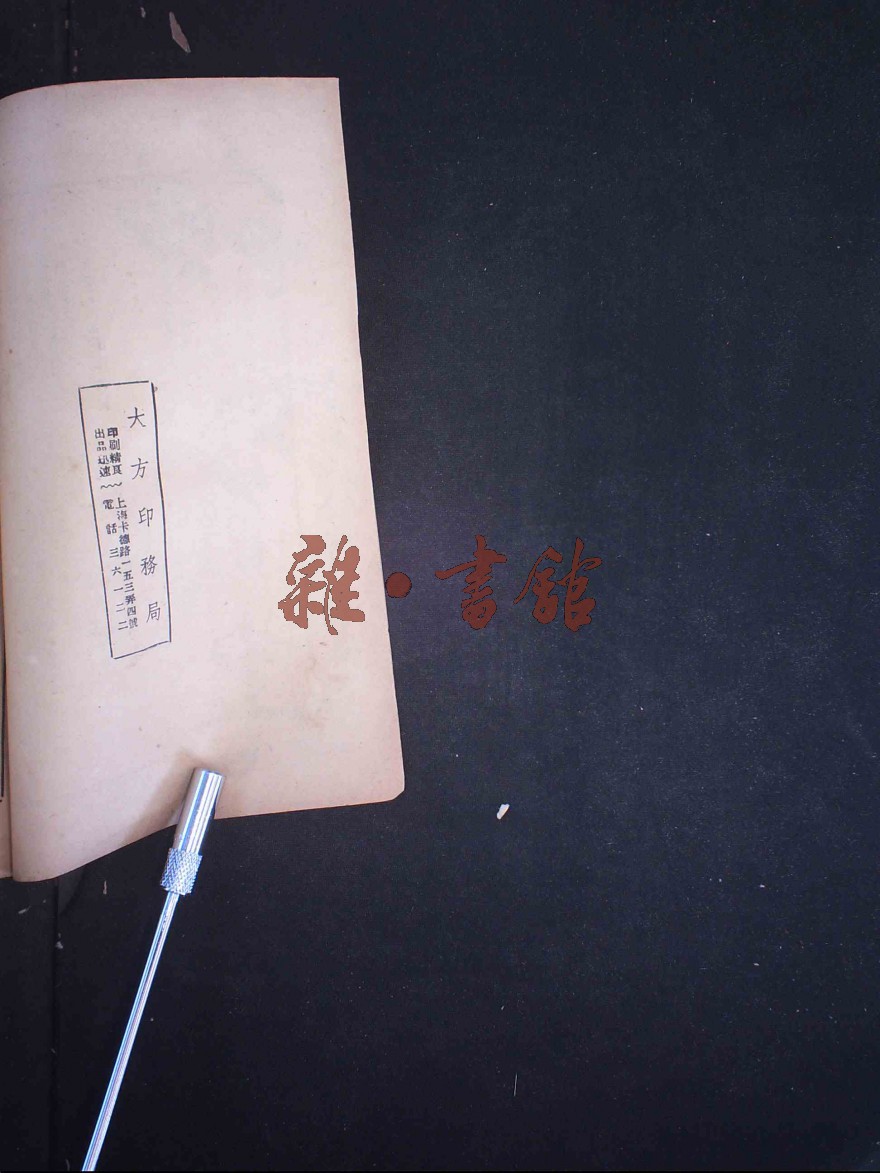 大方印務局
印刷精良
出品迅速
上海卡德路一五三弄四號
電話三六一二二
雜·書館